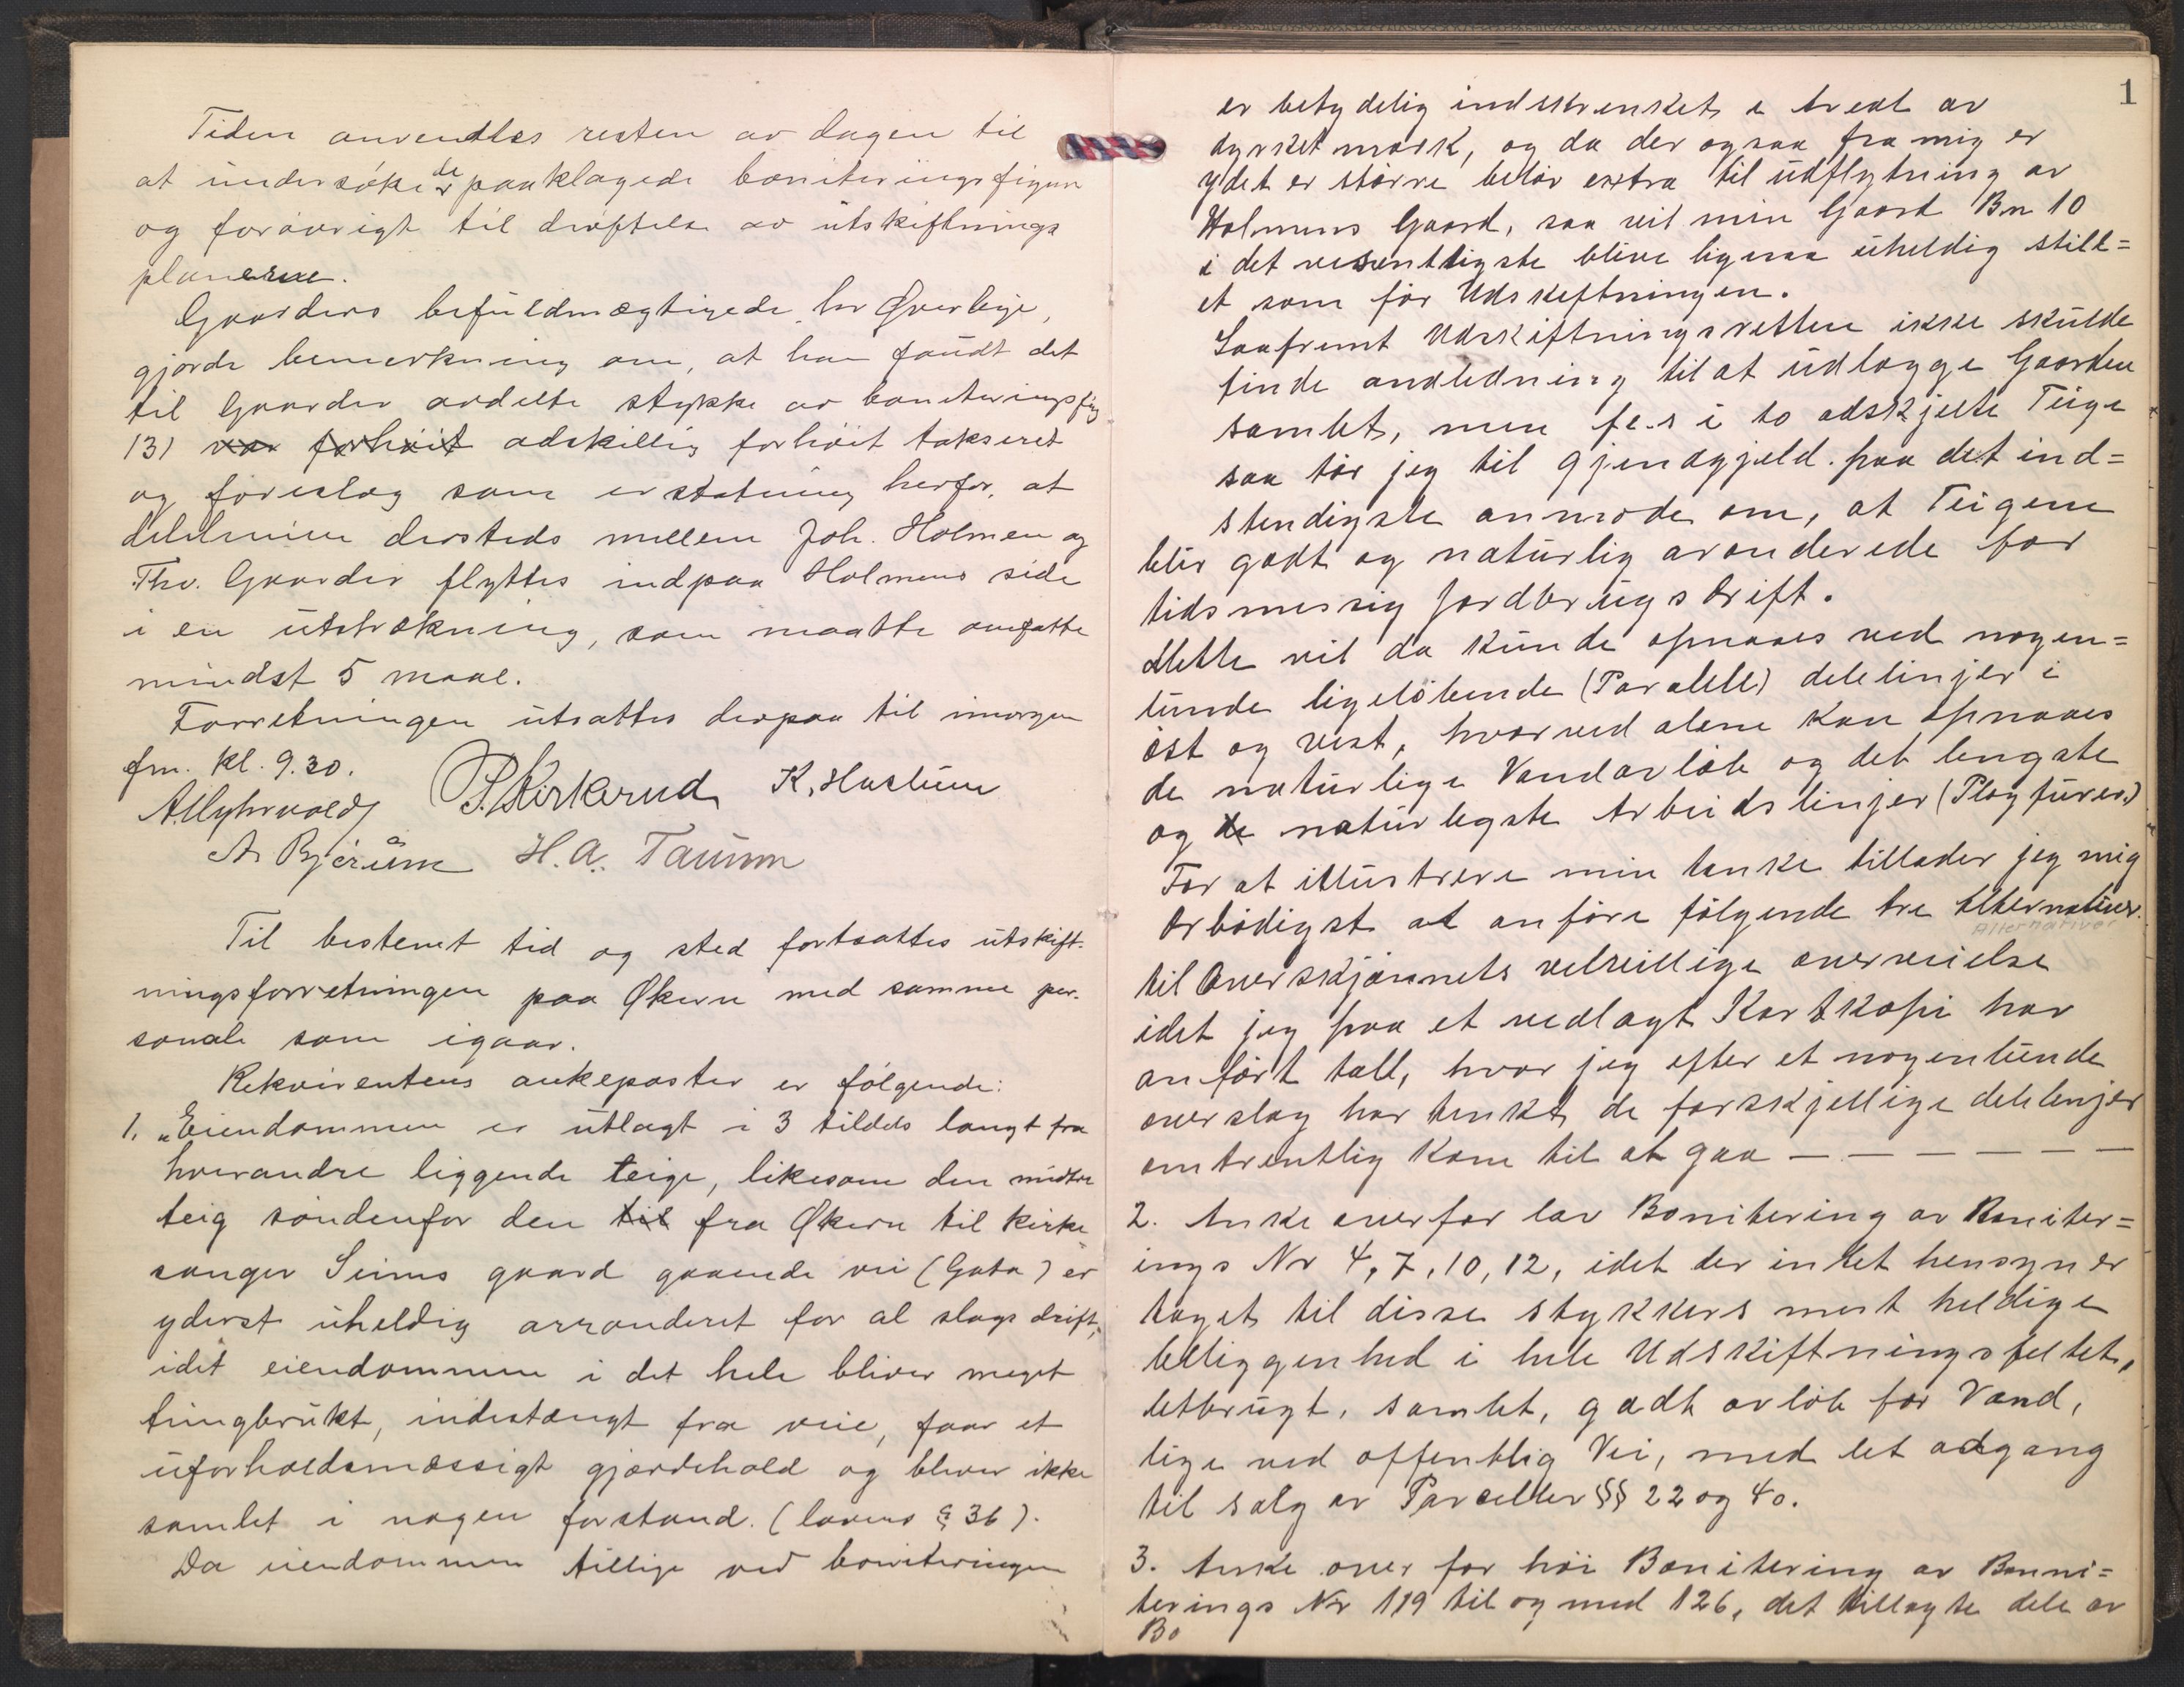 Tiden anvendtes resten av dagen til
at undersöke de paaklagede boniteringsfigurer
og forövrigt til dröftelse av utskiftnings
planerne.
Gaarders befuldmægtigede, hr Øverbye,
gjorde bemerkning om, at han fandt det
til Gaarder avdelte stykke av boniteringsfig
131 var forhöit adskillig forhöit takseret
og foreslog som erstatning herfor, at
delelinien dersteds mellem Joh. Holmen og
Thv. Gaarder flyttes indpaa Holmens side
i en utstrækning, som maatte omfatte
mindst 5 maal.
Forretningen utsattes derpaa til imorgen
fm. kl. 9.30.
A. Myhrvold P. Kirkerud K. Haslum
A. Bjerum H. A. Taumn
Til bestemt tid og sted fortsattes utskift-
ningsforretningen paa Økern med samme per-
sonale som igaar.
Rekvirentens ankeposter er fölgende:
1. „Eiendommen er utlagt i 3 tildels langt fra
hverandre liggende teige, likesom den midtre
teig söndenfor den til fra Økern til kirke
sanger Seims gaard gaaende vei (Gata) er
yderst uheldig arronderet for al slags drift,
idet eiendommen i det hele bliver meget
tungbrukt, indestængt fra veie, faar et
uforholdsmæssigt gjærdehold og bliver ikke
samlet i nogen forstand. (lovens § 36).
Da eiendommen tillige ved boniteringen
1
er betydelig indskrenket i Areal av
dyrket mark, og da der ogsaa fra mig er
ydet et större belöv extra til udflytning av
Holmens Gaard, saa vil min Gaard Bn 10
i det vesentligste blive ligesaa uheldig still=
et som för Udskiftningen.
Saafremt Udskiftningsretten ikke skulde
finde anledning til at udlægge Gaarden
samlet, men f.e.s i to adskjelte Teige
saa tör jeg til gjengjeld. paa det ind=
stendigste anmode om, at Teigene
blir godt og naturlig aronderede for
tidsmessig Jordbrugsdrift.
Dette vil da kunde opnaaes ved nogen=
lunde ligelöbende (Paralell) delelinjer i
öst og vest, hvorved alene kan opnaaes
de naturlige Vandavlöb og det lengste
og de naturligste Arbeidslinjer (Plogfurer.)
For at illustrere min tanke tillader jeg mig
Erbödigst at anföre fölgende tre Alternativer.
Alternativer
til Overskjönnets velvillige overveielse
idet jeg paa et vedlagt Kartkopi har
anfört tall, hvor jeg efter et nogenlunde
overslag har tenkt de forskjellige delelinjer
omtrentlig kom til at gaa — — — — — —
2. Anke overfor lav Bonitering av Boniter=
ings Nr 4, 7, 10, 12, idet der intet hensyn er
taget til disse stykkers mest heldige
beliggenhed i hele Udskiftningsfeltet,
letbrugt, samlet, godt avlöb for Vand,
lige ved offentlig Vei, med let adgang
til salg av Parceller §§ 22 og 40.
3. Anke over for höi Bonitering av Bonni=
terings Nr 119 til og med 126, det tillagte dele av
Bo